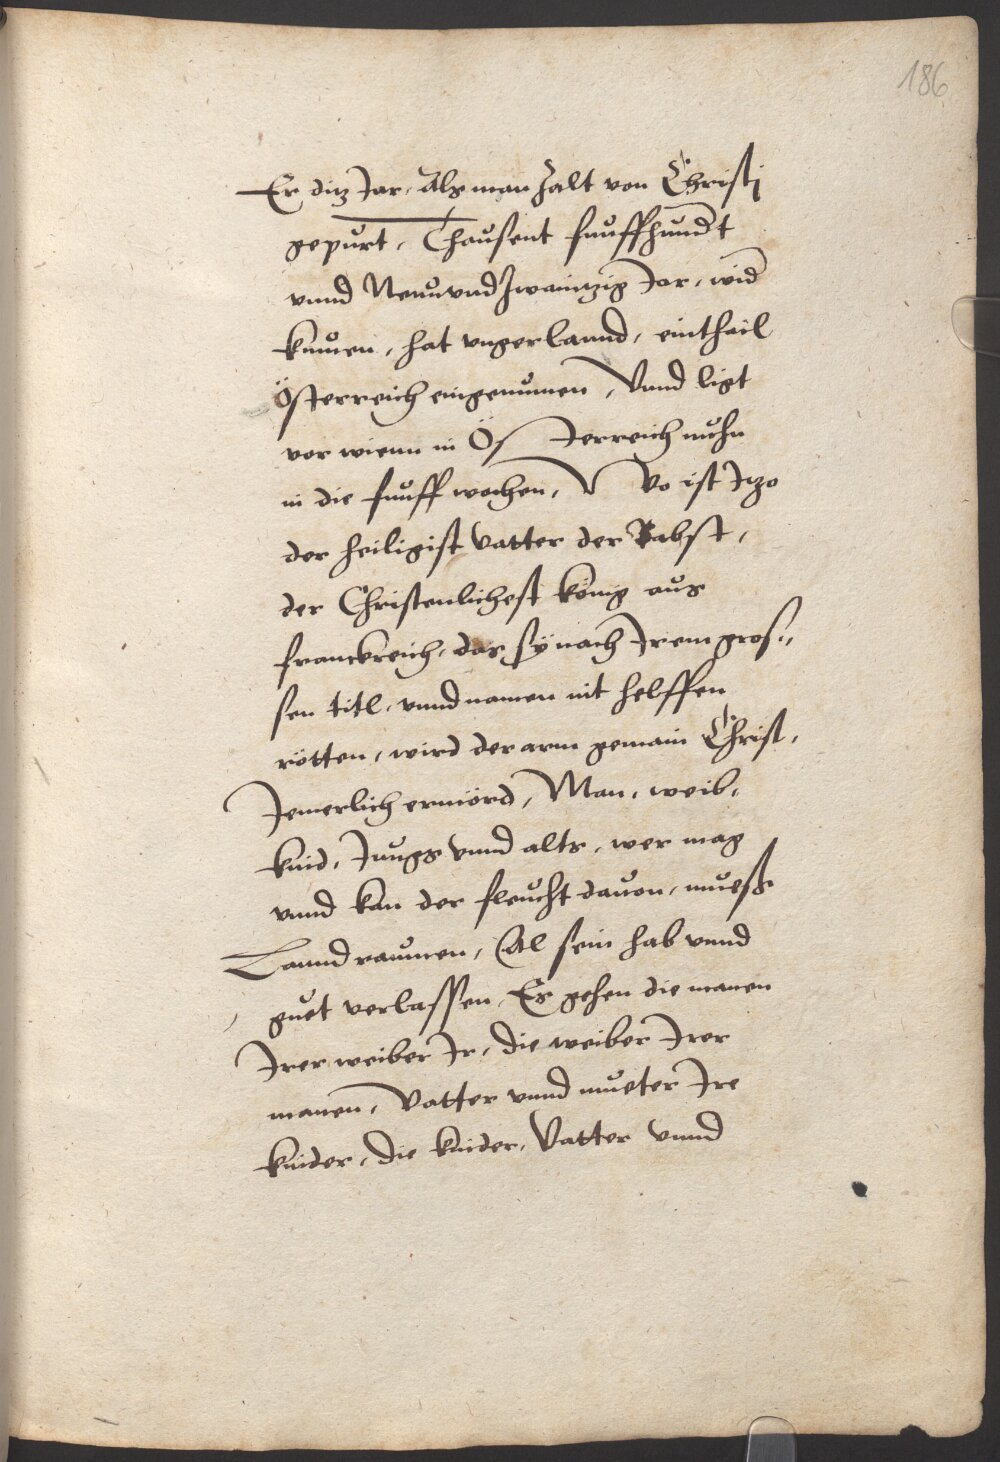 186
Er ditz Jar, Als man Zalt von Christi
gepurt, Thausent funffhundt
vnnd Neunvndzwaintzig Jar, wid
kumen, hat vngerlannd, eintheil
Österreich eingenumen, Vnnd ligt
vor wienn in Österreich nuhn
in die funff wochen, Wo ist Itzo
der heiligist Vatter der Pabst,
der Christenlichest könig aus
franckreich, das sÿ nach Irem gros-
sen titl, vnnd namen nit helffen
rötten, wird der arm gemain Christ,
Jemerlich ermörd, Man, weib,
kind, Jungs vnnd alts, wer mag
vnnd kan der fleucht dauon, muesß
Lannd raumen, Al sein hab vnnd
guet verlassen, Es gehen die manen
Irer weiber Ir, die weiber Irer
manen, Vatter vnnd mueter Ire
kinder, die kinder, Vatter vnnd